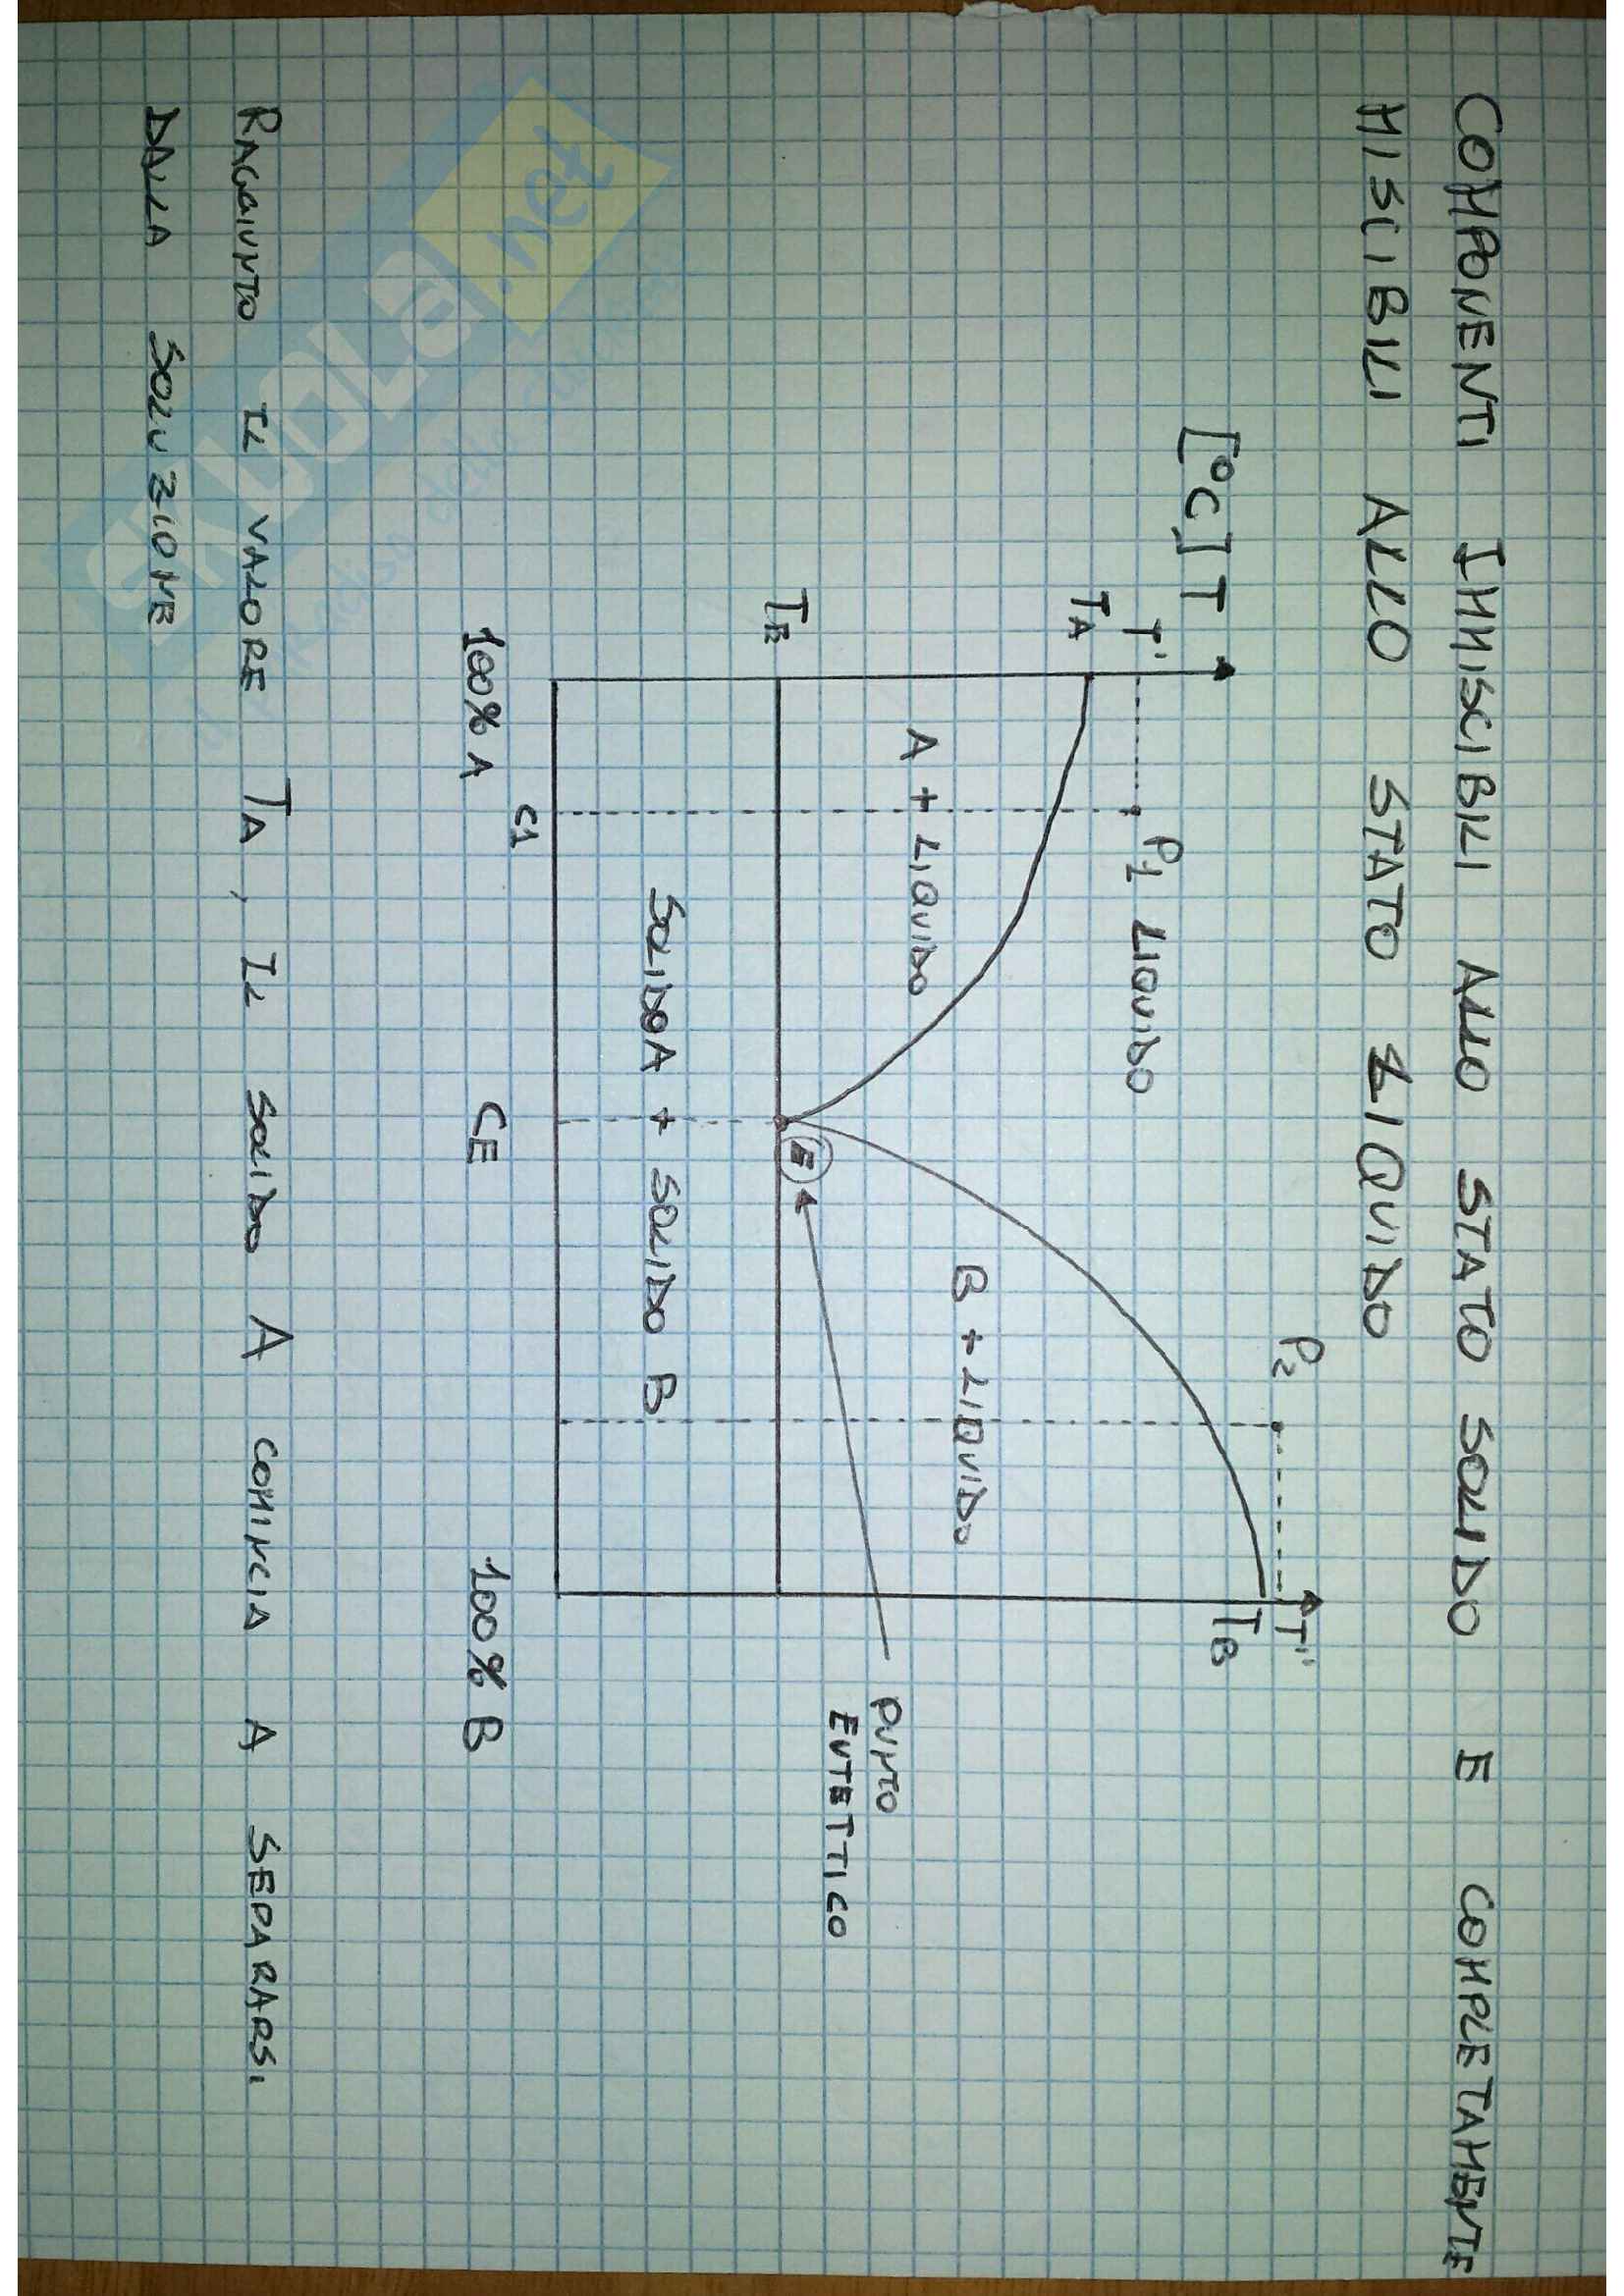 COMPONENTI IMMISCIBILI ALLO STATO SOLIDO E COMPLETAMENTE
MISCIBILI ALLO STATO LIQUIDO
[°C] T
T'
TA
TE
P1 LIQUIDO
P2
T''
TB
A + LIQUIDO
B + LIQUIDO
E
PUNTO
EUTETTICO
SOLIDO A + SOLIDO B
C1
100% A
CE
100% B
RAGGIUNTO IL VALORE TA, IL SOLIDO A COMINCIA A SEPARARSI
DALLA SOLUZIONE
SKUOLA.net